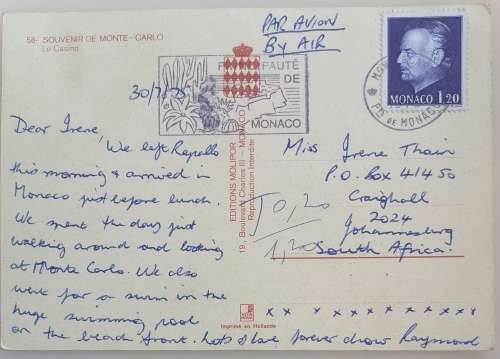 58- SOUVENIR DE MONTE-CARLO
Le Casino
PAR AVION
BY AIR
PRINCIPAUTÉ
DE
MONACO
MONACO 1,20
PTÉ DE MONACO
30/7/75
Dear Irene,
We left Rapallo
this morning & arrived in
Monaco just before lunch.
We spent the day just
walking around and looking
at Monte Carlo. We also
went for a swim in the
huge swimming pool
on the beach front. Lots of love forever &
Raymond
EDITIONS MOLIPOR
19, Boulevard Charles III - MONACO
Reproduction Interdite
Miss Irene Thain
P.O. Box 41450
Craighall
2024
Johannesburg
South Africa.
T 0,20
1,20
x x x x x x x x x x x
Imprimé en Hollande